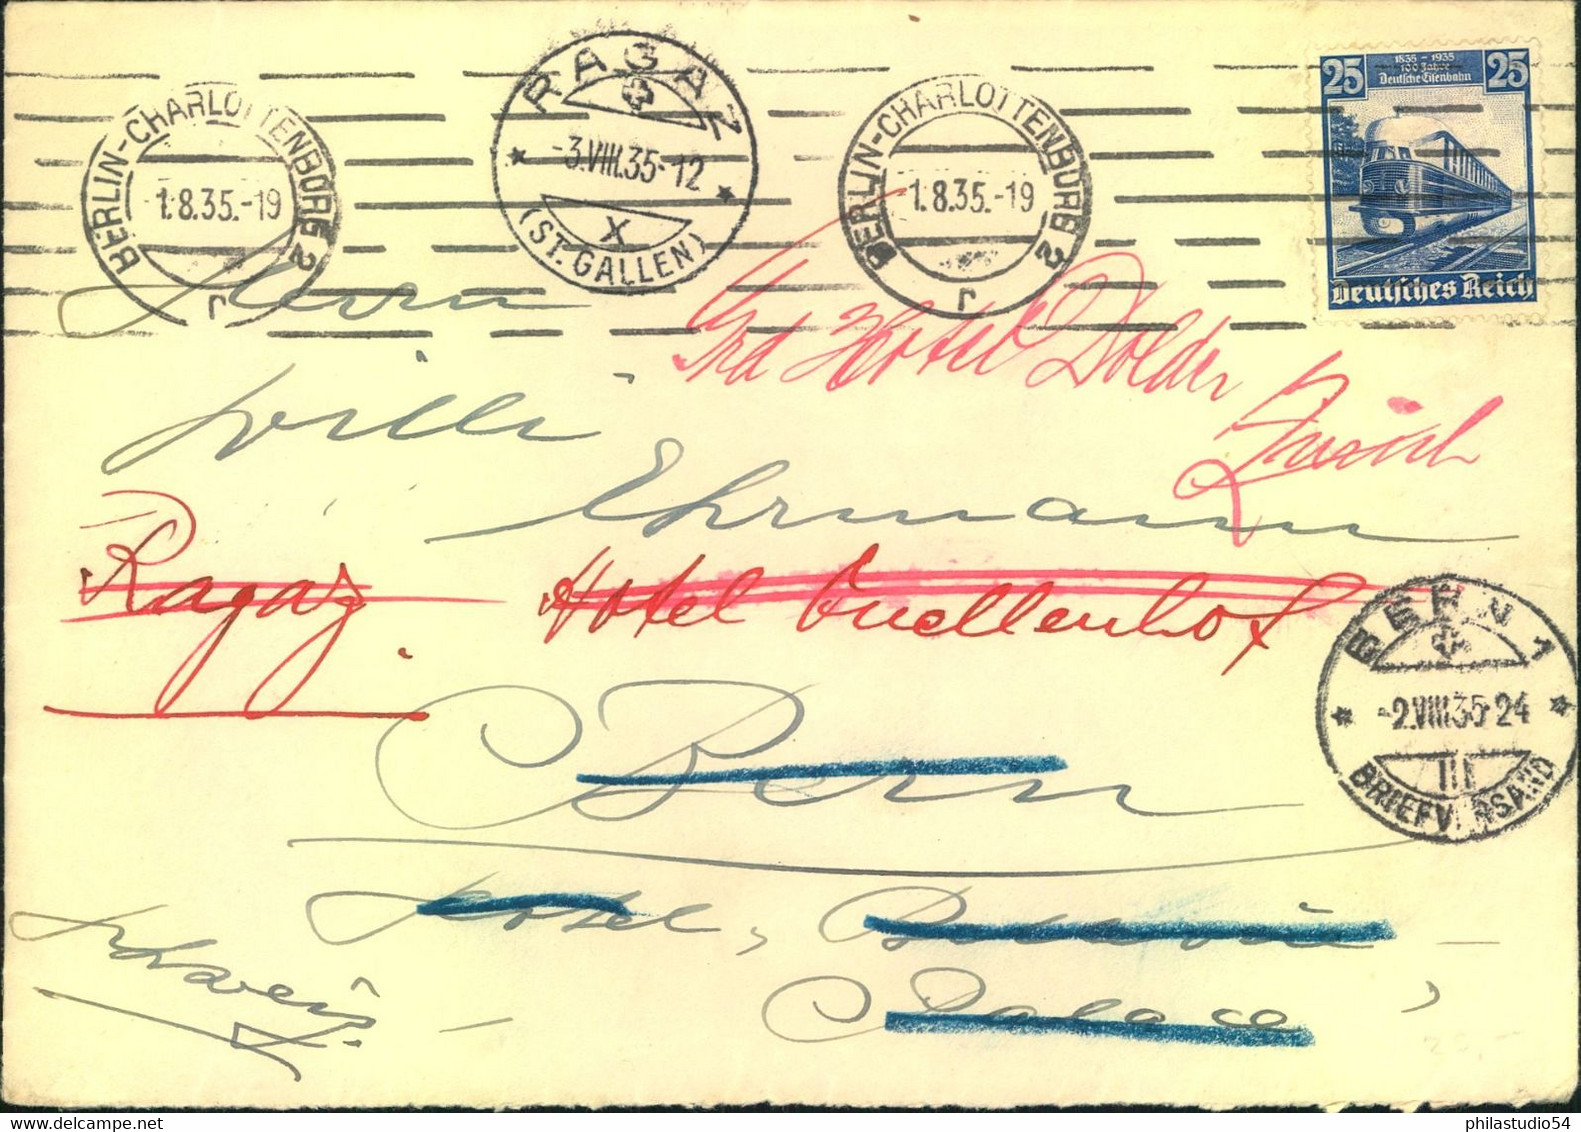 BERLIN-CHARLOTTENBURG 2
1.8.35.-19
r
RAGAZ
-3.VIII.35-12
X
(ST. GALLEN)
BERLIN-CHARLOTTENBURG 2
1.8.35.-19
r
25 1835 - 1935 25
100 Jahre
Deutsche Eisenbahn
Deutsches Reich
Herrn
Grd Hotel Dolder
Zürich
Willi
Ehrmann
Ragaz. Hotel Quellenhof
BERN 1
-2.VIII.35-24
III
BRIEFVERSAND
Bern
Hotel, Bellevue -
Palace,
Schweiz -
25,-
philastudio54